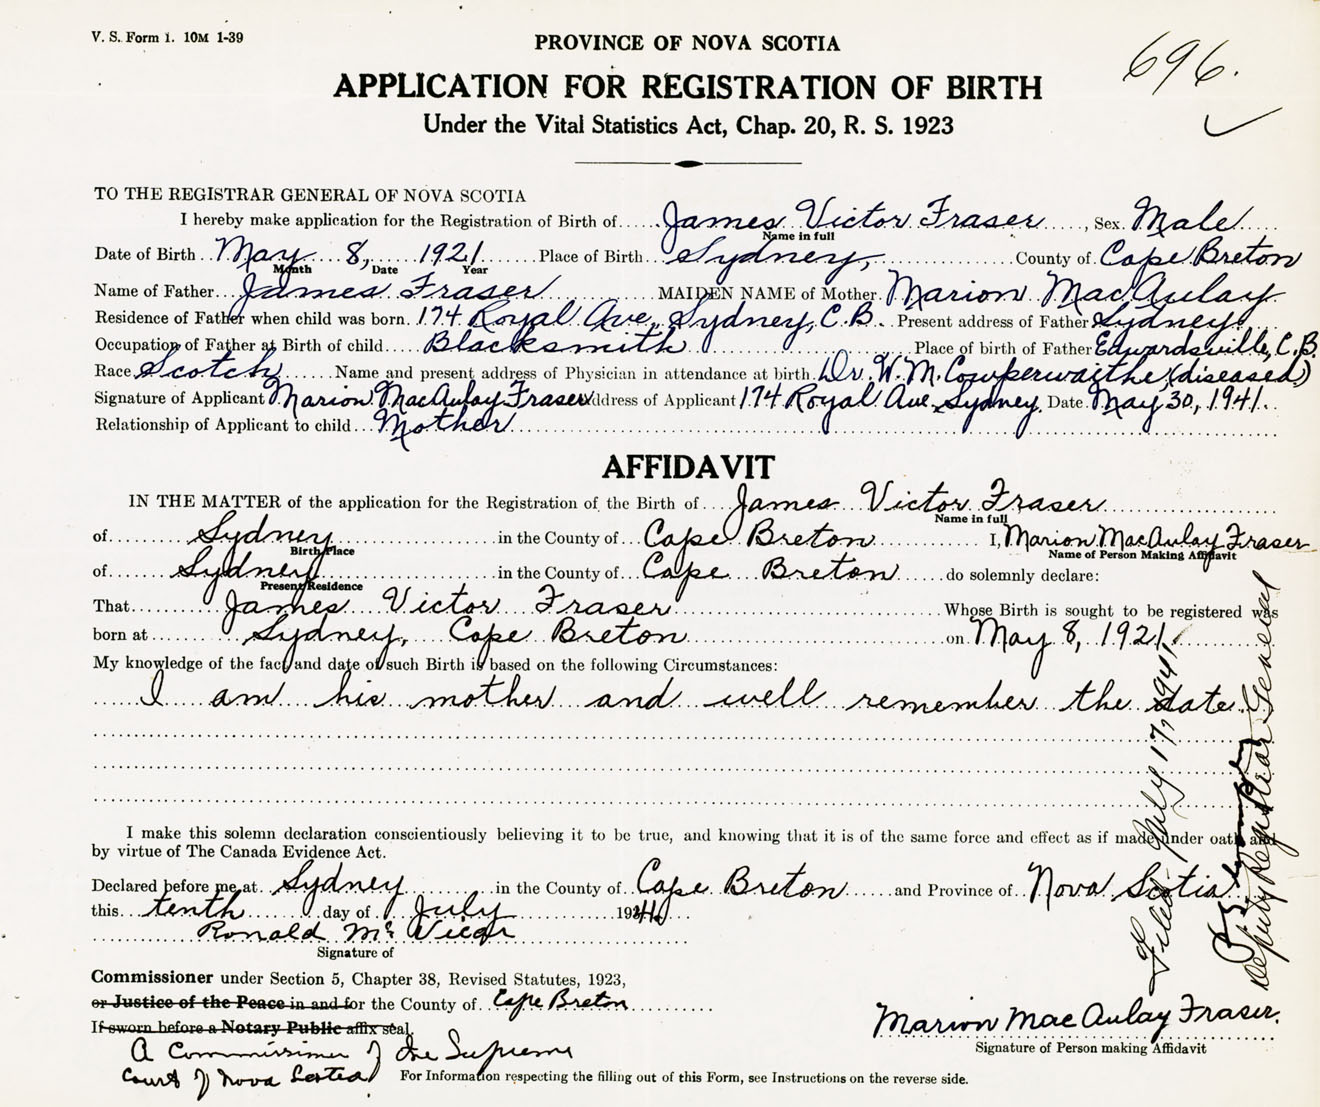 V. S. Form 1. 10M 1-39
696.
PROVINCE OF NOVA SCOTIA
APPLICATION FOR REGISTRATION OF BIRTH
Under the Vital Statistics Act, Chap. 20, R. S. 1923
TO THE REGISTRAR GENERAL OF NOVA SCOTIA
I hereby make application for the Registration of Birth of James Victor Fraser, Sex Male
Name in full
Date of Birth May 8, 1921 Place of Birth Sydney, County of Cape Breton
Month Date Year
Name of Father James Fraser MAIDEN NAME of Mother Marion MacAulay
Residence of Father when child was born 174 Royal Ave, Sydney, C.B. Present address of Father Sydney
Occupation of Father at Birth of child Blacksmith Place of birth of Father Edwardsville, C.B.
Race Scotch Name and present address of Physician in attendance at birth Dr. W. M. Cowperwaithe (diseased)
Signature of Applicant Marion MacAulay Fraser Address of Applicant 174 Royal Ave, Sydney Date May 30, 1941.
Relationship of Applicant to child Mother
AFFIDAVIT
IN THE MATTER of the application for the Registration of the Birth of James Victor Fraser
Name in full
of Sydney in the County of Cape Breton I, Marion MacAulay Fraser
Birth Place Name of Person Making Affidavit
of Sydney in the County of Cape Breton do solemnly declare:
Present Residence
That James Victor Fraser Whose Birth is sought to be registered was
born at Sydney, Cape Breton on May 8, 1921.
My knowledge of the fact and date of such Birth is based on the following Circumstances:
I am his mother and well remember the date.
I make this solemn declaration conscientiously believing it to be true, and knowing that it is of the same force and effect as if made under oath and
by virtue of The Canada Evidence Act.
Declared before me at Sydney in the County of Cape Breton and Province of Nova Scotia
this tenth day of July 1941
Ronald McVicar
Signature of
Commissioner under Section 5, Chapter 38, Revised Statutes, 1923,
or Justice of the Peace in and for the County of Cape Breton
If sworn before a Notary Public affix seal.
A Commissioner of the Supreme
Court of Nova Scotia
Marion MacAulay Fraser.
Signature of Person making Affidavit
For Information respecting the filling out of this Form, see Instructions on the reverse side.
Filed July 17, 1941.
Deputy Registrar General